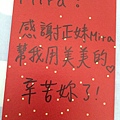 Mira:
感謝正妹Mira
幫我用美美的
辛苦妳了!